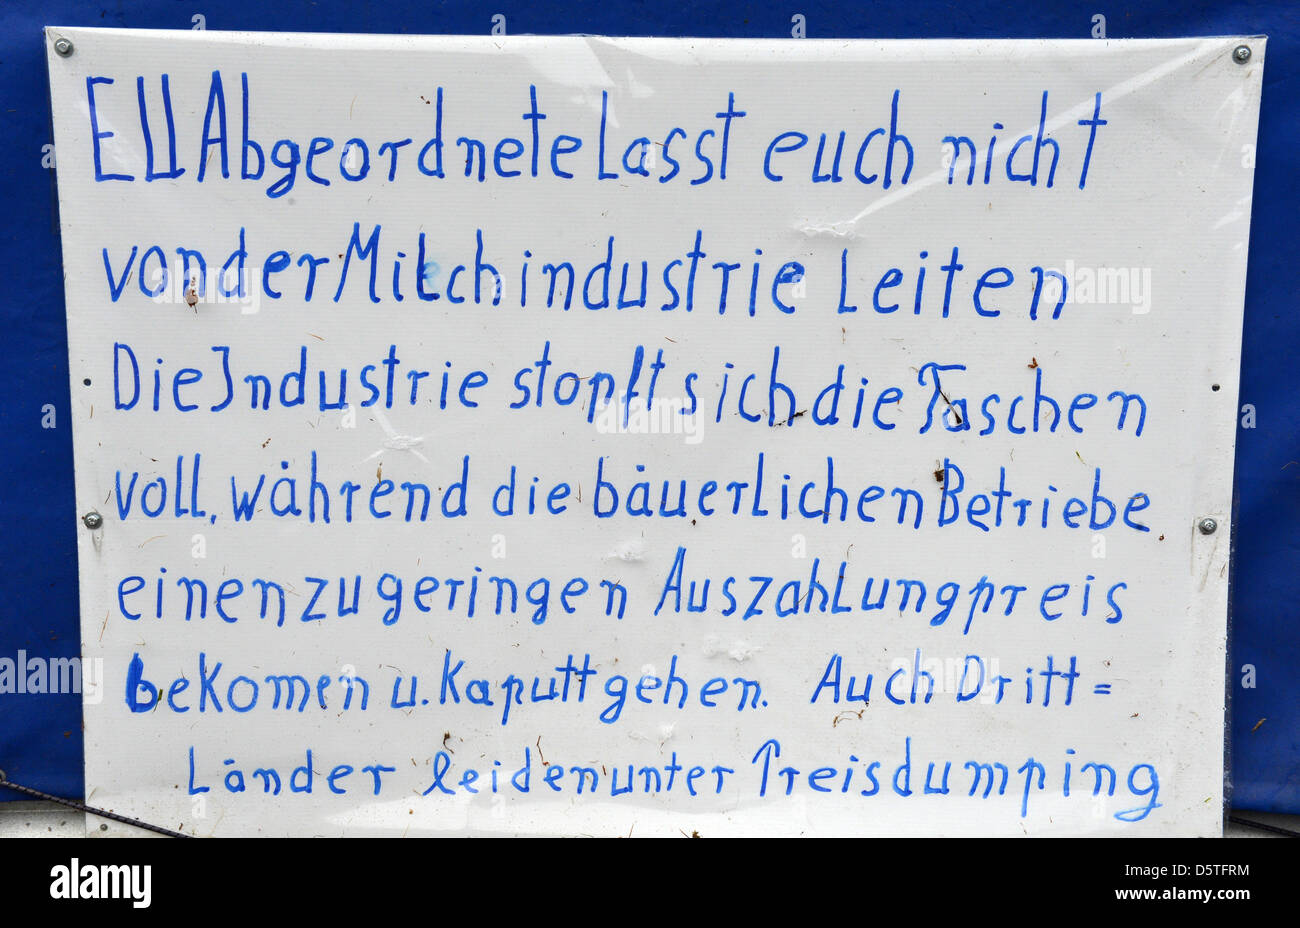 EU Abgeordnete Lasst euch nicht
von der Milchindustrie Leiten
Die Industrie stopft sich die Taschen
voll, während die bäuerlichen Betriebe
einen zu geringen Auszahlungpreis
bekomen u. kaputt gehen. Auch Dritt=
Länder leiden unter Preisdumping
alamy
Image ID: D5TFRM
www.alamy.com